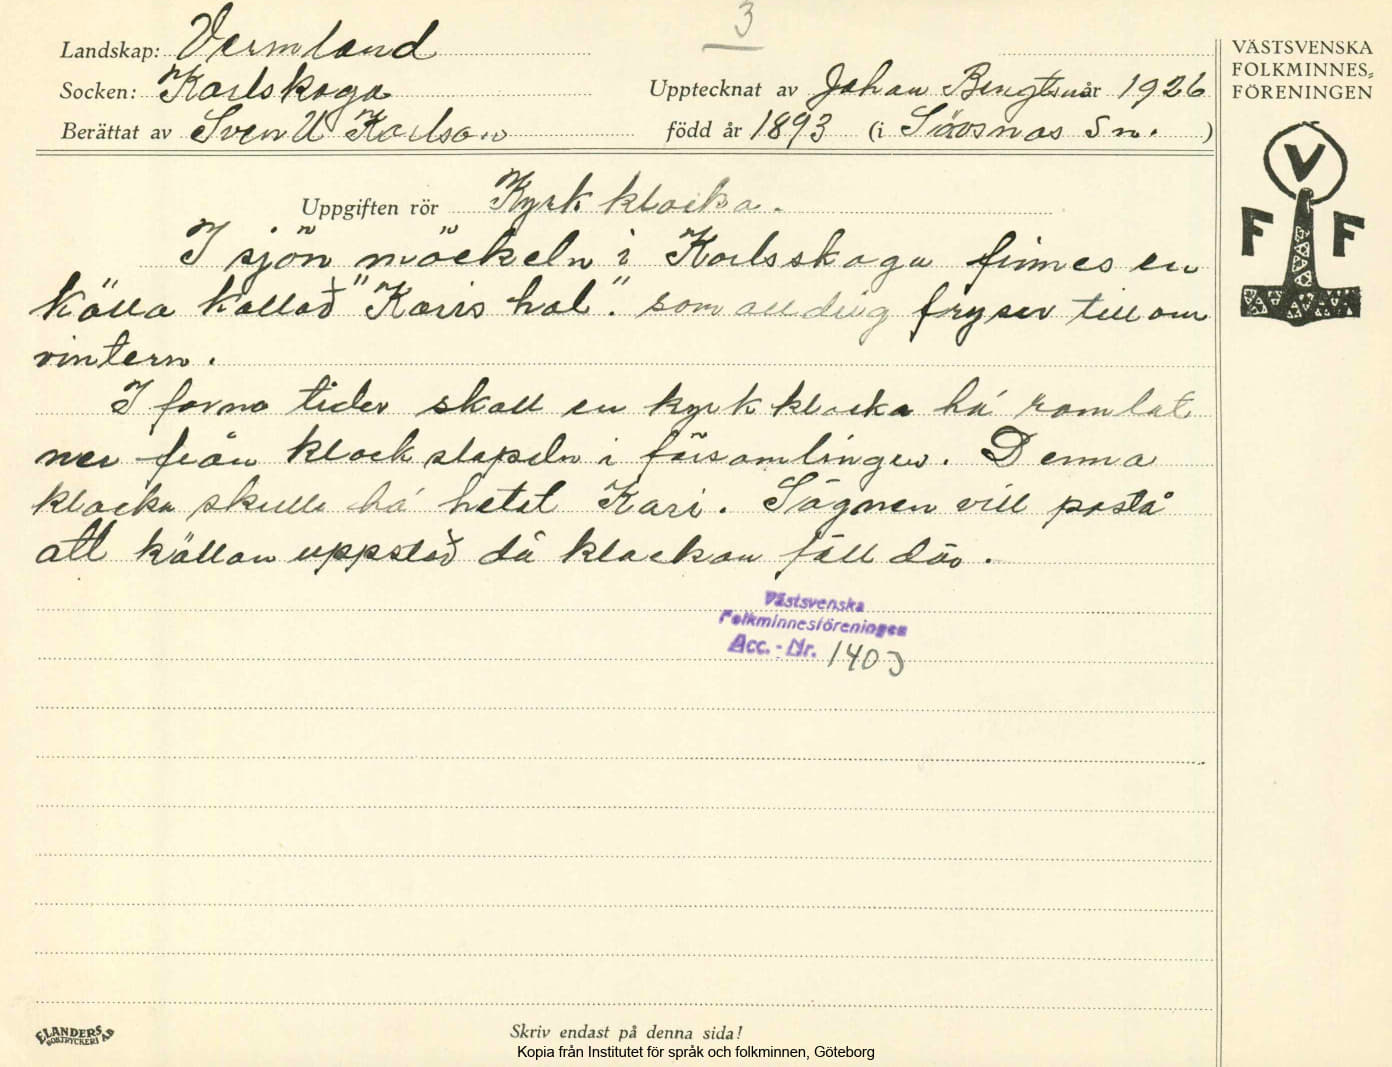 3
Landskap: Vermland
Socken: Karlskoga
Upptecknat av Johan Bengtsson år 1926
Berättat av Sven U Karlson
född år 1893 (i Sävsnäs Sn. )
VÄSTSVENSKA
FOLKMINNES=
FÖRENINGEN
V
F F
Uppgiften rör Kyrkklocka.
I sjön "möckeln" i Karlsskoga finnes en
källa kallad "Karis hål". som alldrig fryser till om
vintern.
I forna tider skall en kyrkklocka há ramlat
ner från klockstapeln i församlingen. Denna
klocka skulle há hetat Kari. Sägnen vill påstå
att källan uppstod då klockan föll där.
Västsvenska
Folkminnesföreningen
Acc. - Nr. 1403
ELANDERS
BOKTRYCKERI AB
Skriv endast på denna sida!
Kopia från Institutet för språk och folkminnen, Göteborg